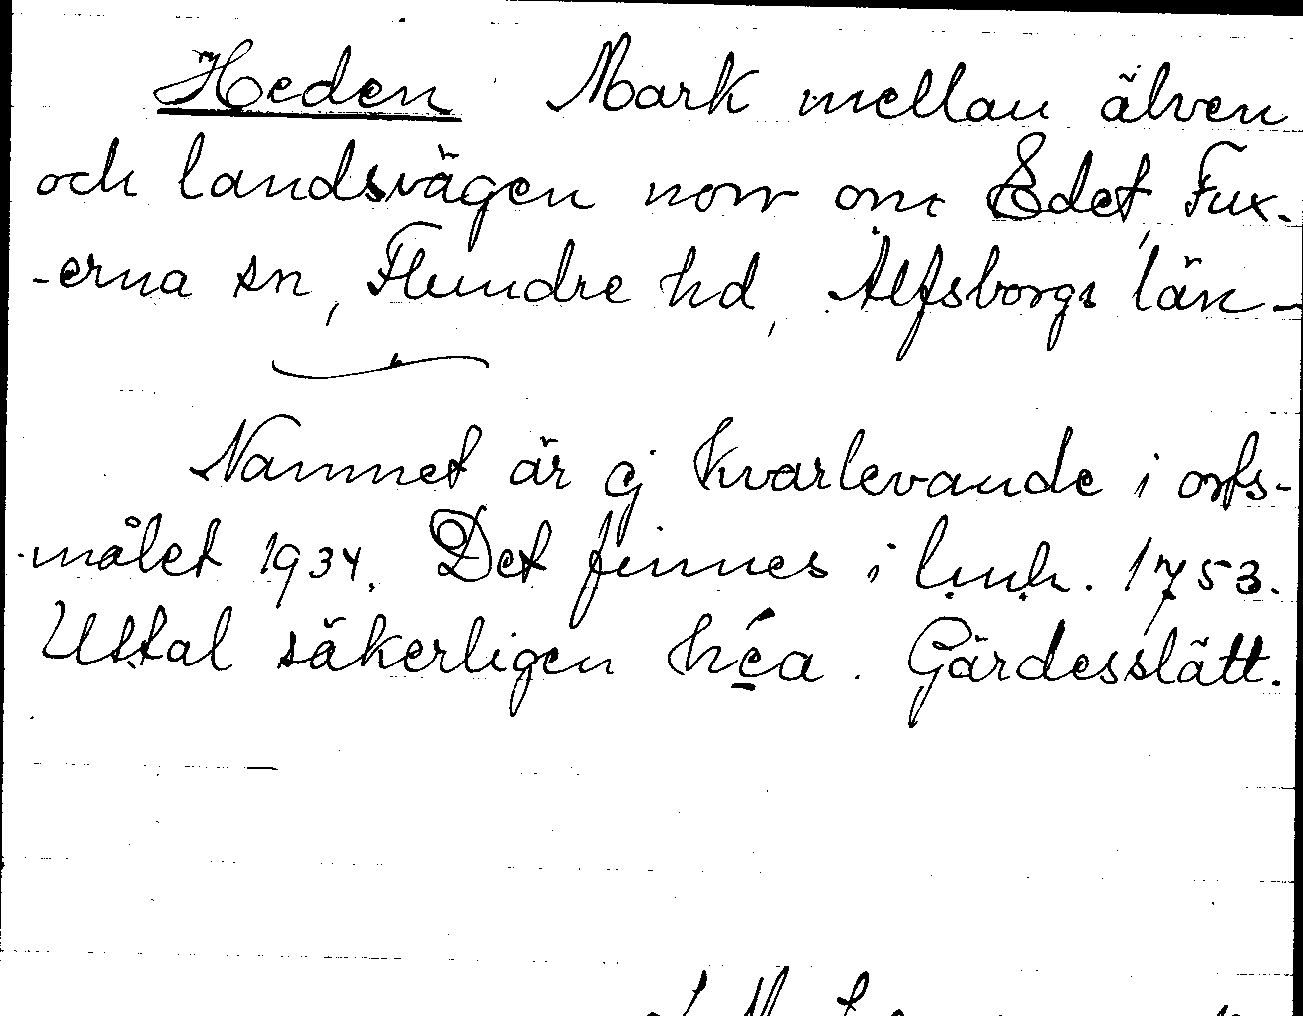 Heden Mark mellan älven
och landsvägen norr om Edet, Fux-
-erna sn, Flundre hd, Älfsborgs län-
Namnet är ej kvarlevande i orts-
-målet 1934. Det finnes i l.m.h. 1753.
Uttal säkerligen héa. Gärdesslätt.